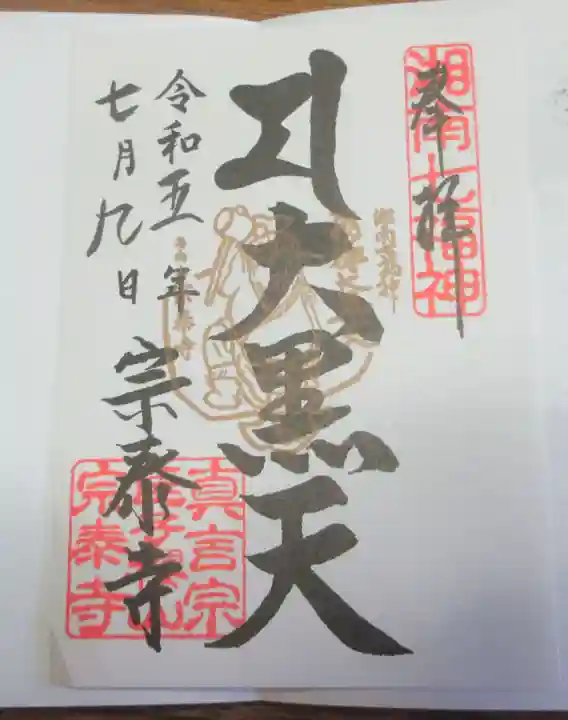 奉拝
湘南七福神
大黒天
令和五年
七月九日
宗泰寺
真言宗
宗泰寺